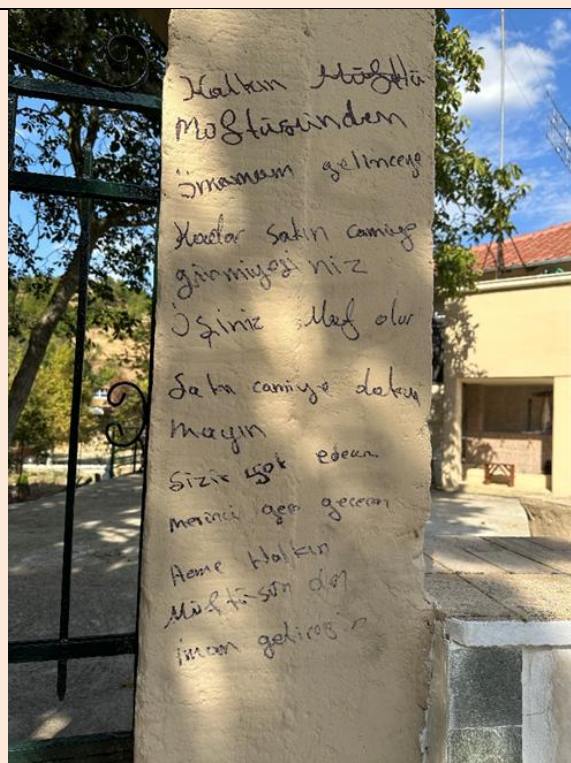 Halkın Müftü
Müftüsünden
imamım gelinceye
Kadar sakın camiye
girmiyesiniz
İşiniz Mef olur
Sakın camiye dokun
mayın
Sizin yok ederim
gece gecerim
Heme Halkın
Müftüsün den
imam getireyin